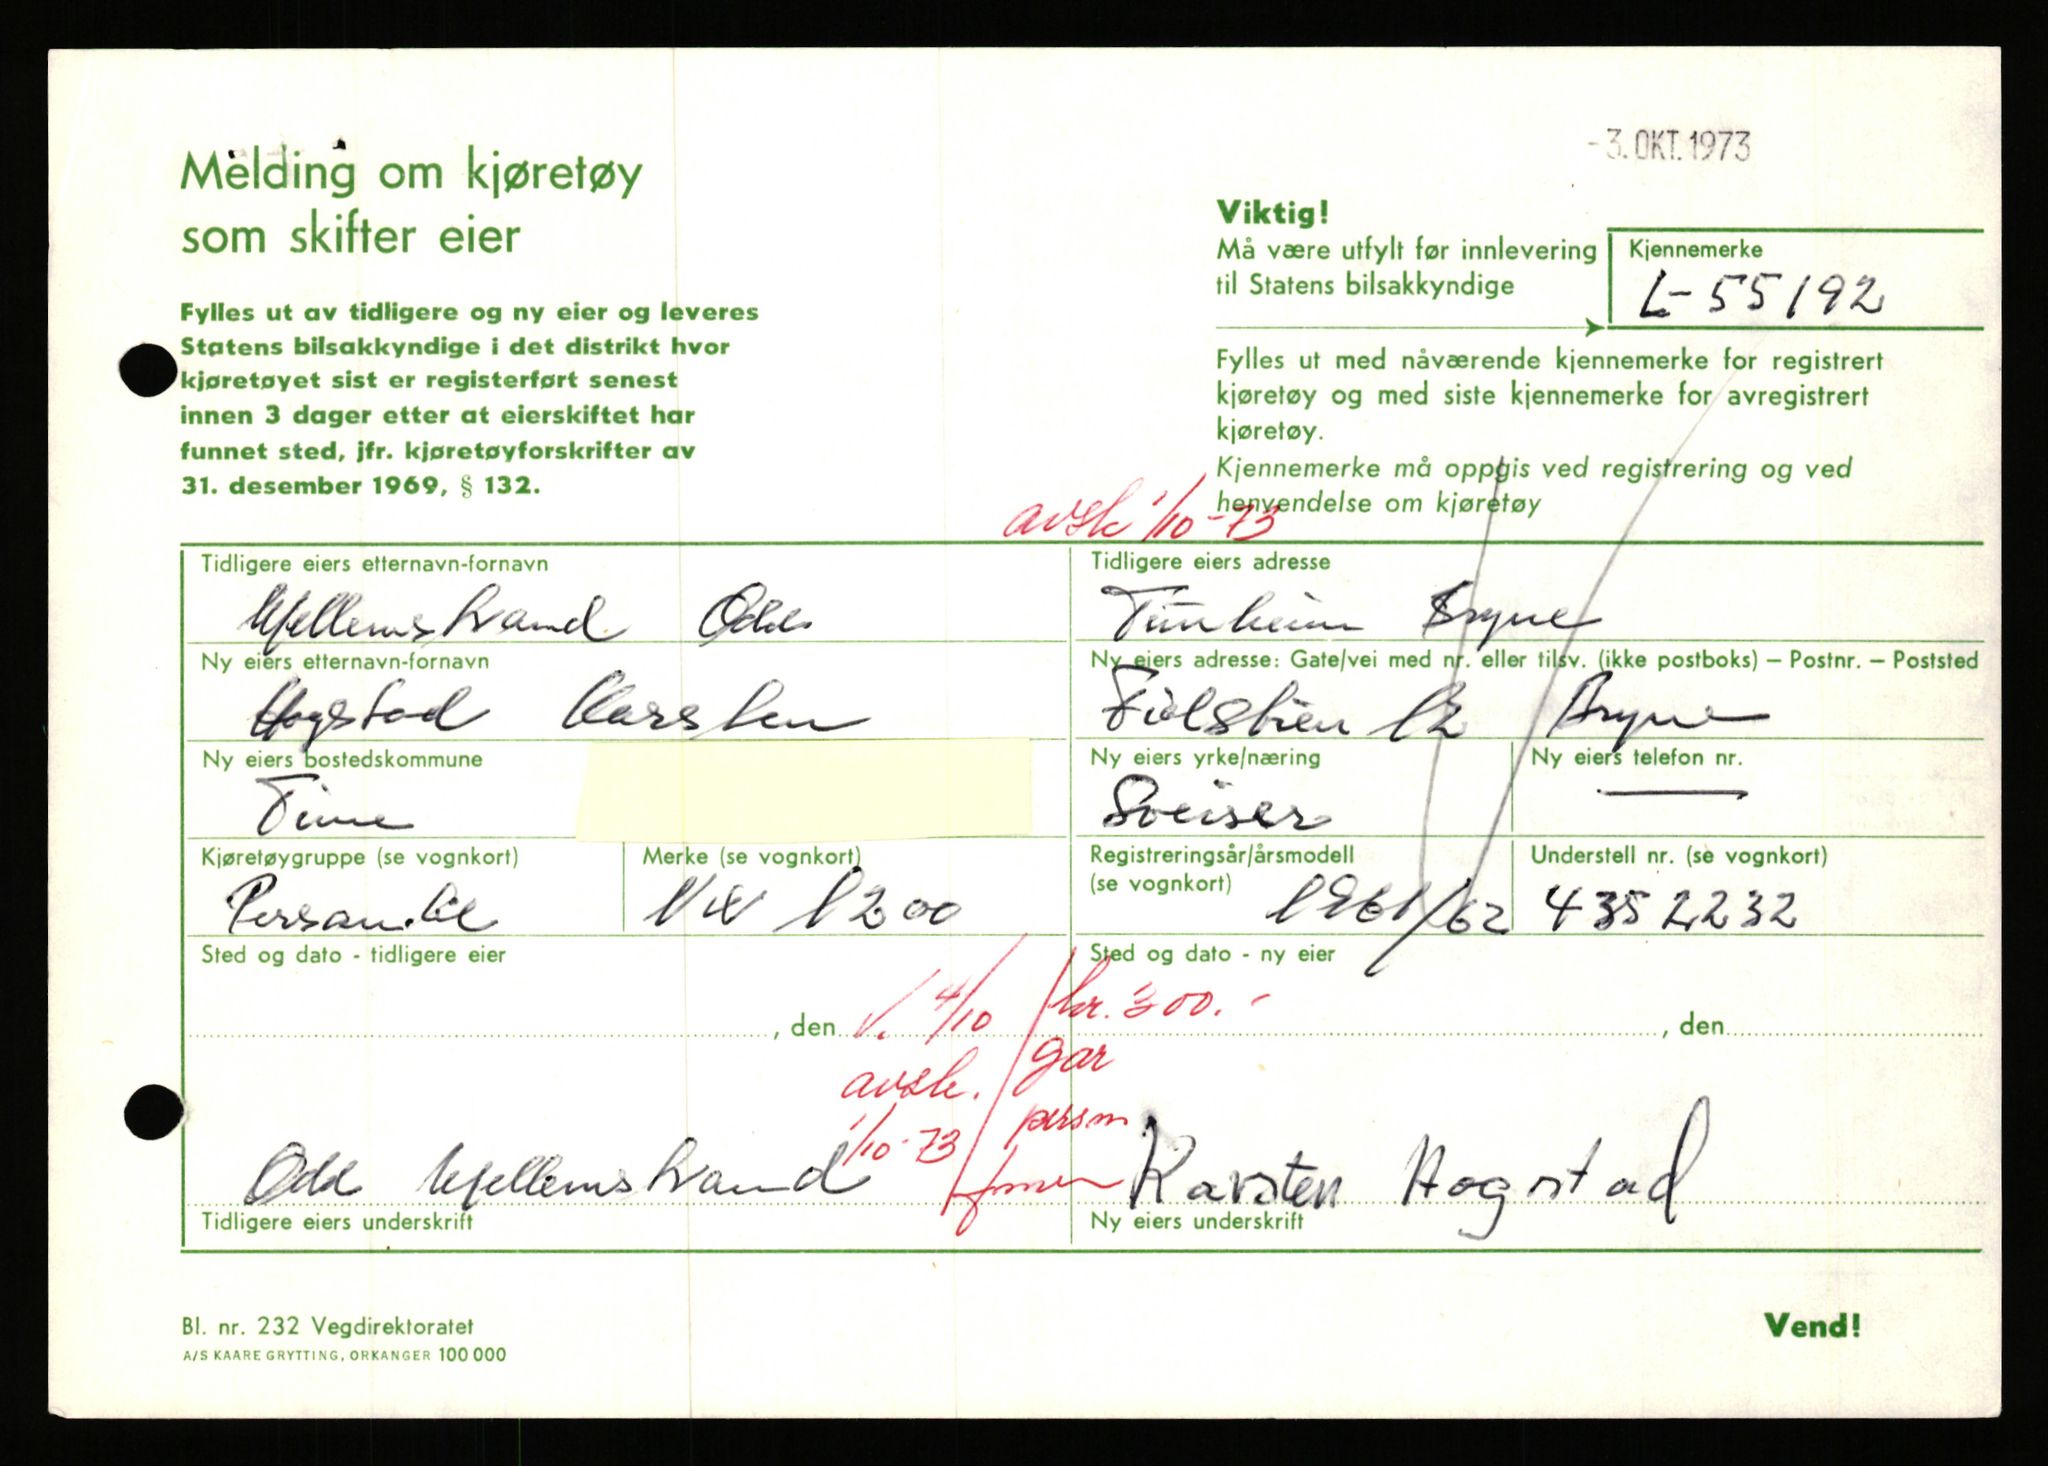 -3. OKT. 1973
Melding om kjøretøy
som skifter eier
Viktig!
Må være utfylt før innlevering
til Statens bilsakkyndige
Kjennemerke
L-55192
Fylles ut av tidligere og ny eier og leveres
Statens bilsakkyndige i det distrikt hvor
kjøretøyet sist er registerført senest
innen 3 dager etter at eierskiftet har
funnet sted, jfr. kjøretøyforskrifter av
31. desember 1969, § 132.
Fylles ut med nåværende kjennemerke for registrert
kjøretøy og med siste kjennemerke for avregistrert
kjøretøy.
Kjennemerke må oppgis ved registrering og ved
henvendelse om kjøretøy
avsk 1/10-73
Tidligere eiers etternavn-fornavn
Mjellemstrand Odd
Tidligere eiers adresse
Tunheim Bryne
Ny eiers etternavn-fornavn
Hogstad Karsten
Ny eiers adresse: Gate/vei med nr. eller tilsv. (ikke postboks) – Postnr. – Poststed
12 Bryne
Ny eiers bostedskommune
Time
Ny eiers yrke/næring
Sveiser
Ny eiers telefon nr.
—
Kjøretøygruppe (se vognkort)
Personbil
Merke (se vognkort)
VW 1200
Registreringsår/årsmodell
(se vognkort)
1961/62
Understell nr. (se vognkort)
4352232
Sted og dato - tidligere eier
, den
V. 4/10
avsk.
1/10-73
Sted og dato - ny eier
kr. 300.-
gar
person
, den
Odd Mjellemstrand
Tidligere eiers underskrift
Karsten Hogstad
Ny eiers underskrift
Bl. nr. 232 Vegdirektoratet
A/S KAARE GRYTTING, ORKANGER 100 000
Vend!